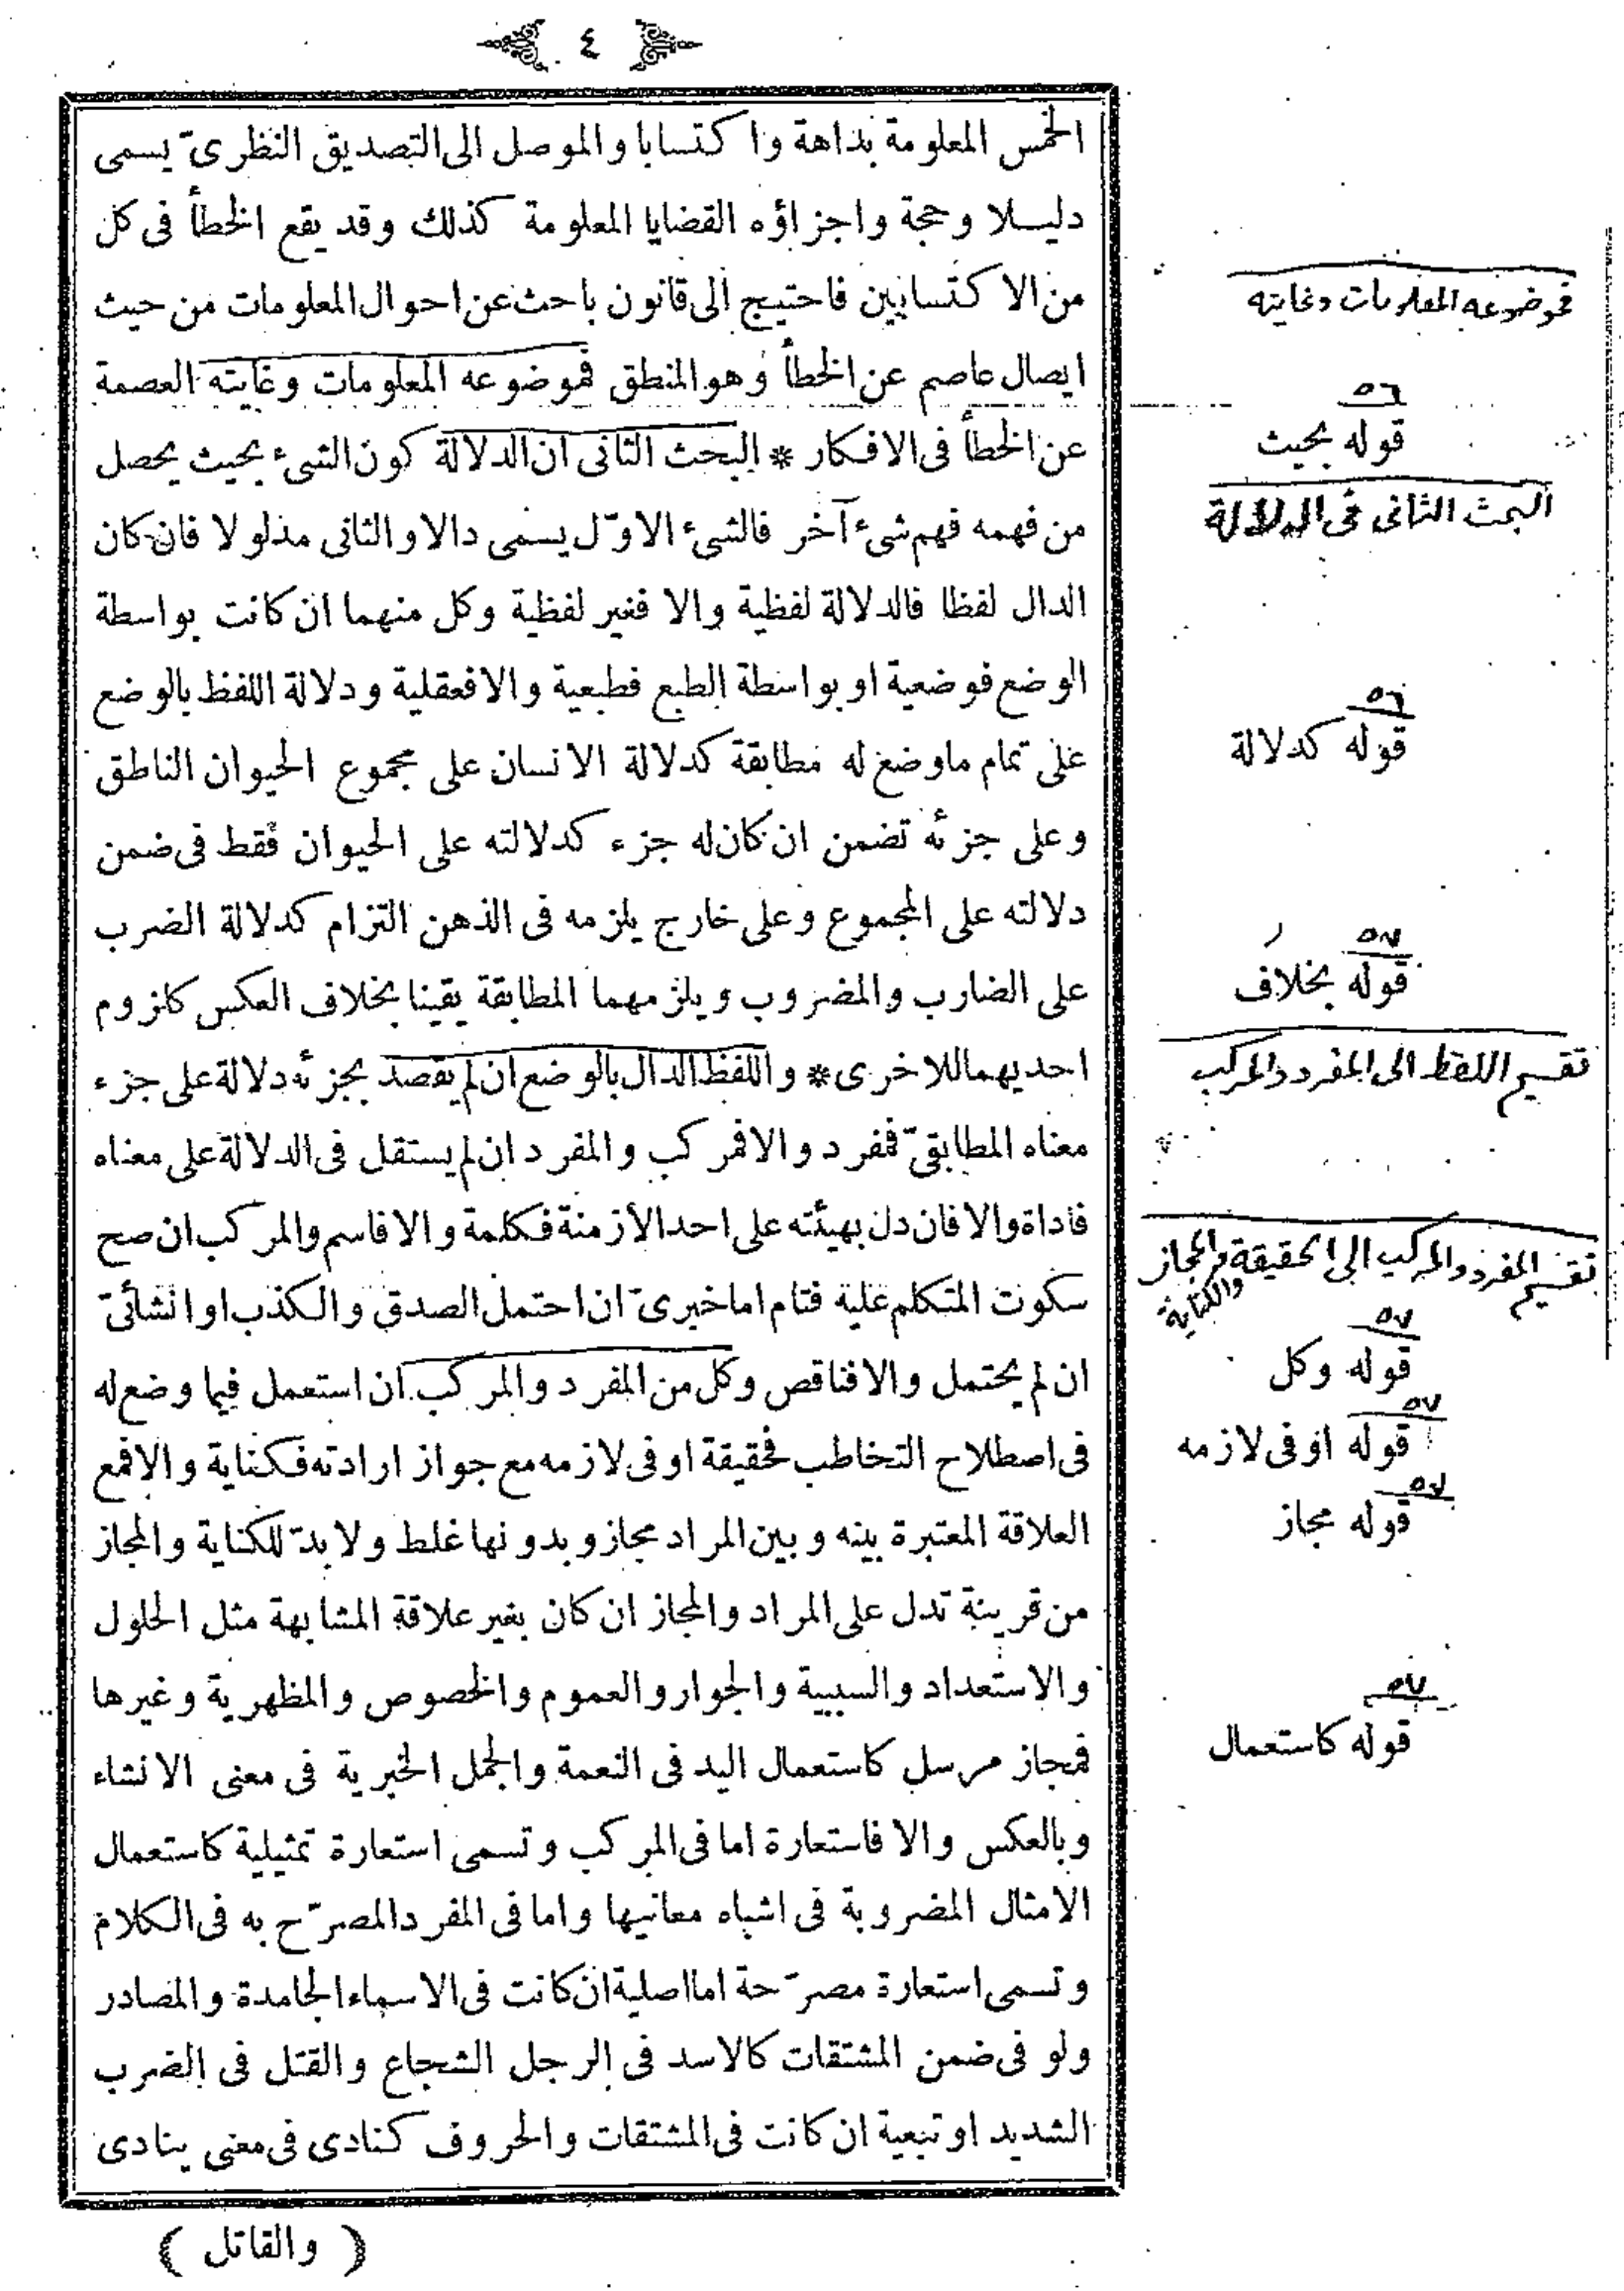 ٤
الخمس المعلومة بداهة واكتسابا والموصل الى التصديق النظرىّ يسمى
دليلا وحجة واجزاؤه القضايا المعلومة كذلك وقد يقع الخطأ فى كل
من الاكتسابين فاحتيج الى قانون باحث عن احوال المعلومات من حيث
ايصال عاصم عن الخطأ وهو المنطق فموضوعه المعلومات وغايته العصمة
عن الخطأ فى الافكار * البحث الثانى ان الدلالة كون الشىء بحيث يحصل
من فهمه فهم شىء آخر فالشىء الاوّل يسمى دالا والثانى مدلولا فان كان
الدال لفظا فالدلالة لفظية والا فغير لفظية وكل منهما ان كانت بواسطة
الوضع فوضعية او بواسطة الطبع فطبعية والا فعقلية ودلالة اللفظ بالوضع
على تمام ما وضع له مطابقة كدلالة الانسان على مجموع الحيوان الناطق
وعلى جزئه تضمن ان كان له جزء كدلالته على الحيوان فقط فى ضمن
دلالته على المجموع وعلى خارج يلزمه فى الذهن التزام كدلالة الضرب
على الضارب والمضروب ويلزمهما المطابقة يقينا بخلاف العكس كلزوم
احديهما للاخرى * واللفظ الدال بالوضع ان لم يقصد بجزئه دلالة على جزء
معناه المطابقىّ فمفرد والا فمركب والمفرد ان لم يستقل فى الدلالة على معناه
فاداة والا فان دل بهيئته على احد الازمنة فكلمة والا فاسم والمركب ان صح
سكوت المتكلم عليه فتام اما خبرىّ ان احتمل الصدق والكذب او انشائىّ
ان لم يحتمل والا فناقص وكل من المفرد والمركب ان استعمل فيما وضع له
فى اصطلاح التخاطب فحقيقة او فى لازمه مع جواز ارادته فكناية والا فمع
العلاقة المعتبرة بينه وبين المراد مجاز وبدونها غلط ولا بدّ للكناية والمجاز
من قرينة تدل على المراد والمجاز ان كان بغير علاقة المشابهة مثل الحلول
والاستعداد والسببية والجوار والعموم والخصوص والمظهرية وغيرها
فمجاز مرسل كاستعمال اليد فى النعمة والجمل الخبرية فى معنى الانشاء
وبالعكس والا فاستعارة اما فى المركب وتسمى استعارة تمثيلية كاستعمال
الامثال المضروبة فى اشباه معانيها واما فى المفرد المصرّح به فى الكلام
وتسمى استعارة مصرّحة اما اصلية ان كانت فى الاسماء الجامدة والمصادر
ولو فى ضمن المشتقات كالاسد فى الرجل الشجاع والقتل فى الضرب
الشديد او تبعية ان كانت فى المشتقات والحروف كنادى فى معنى ينادى
( والقاتل )
فموضوعه المعلومات وغايته
٥٦
قوله بحيث
البحث الثانى فى الدلالة
٥٦
قوله كدلالة
٥٧
قوله بخلاف
تقسيم اللفظ الى المفرد والمركب
تقسيم المفرد والمركب الى الحقيقة والمجاز
والكناية
٥٧
قوله وكل
٥٧
قوله او فى لازمه
٥٧
قوله مجاز
٥٧
قوله كاستعمال